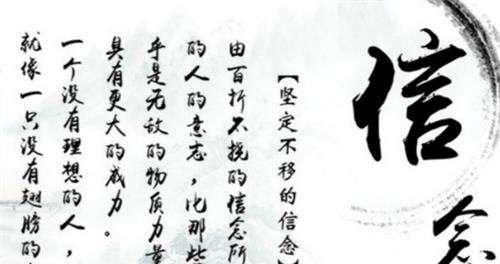 信念
【坚定不移的信念】
由百折不挠的信念所
的人的意志，比那些
乎是无敌的物质力量
具有更大的威力。
一个没有理想的人，
就像一只没有翅膀的